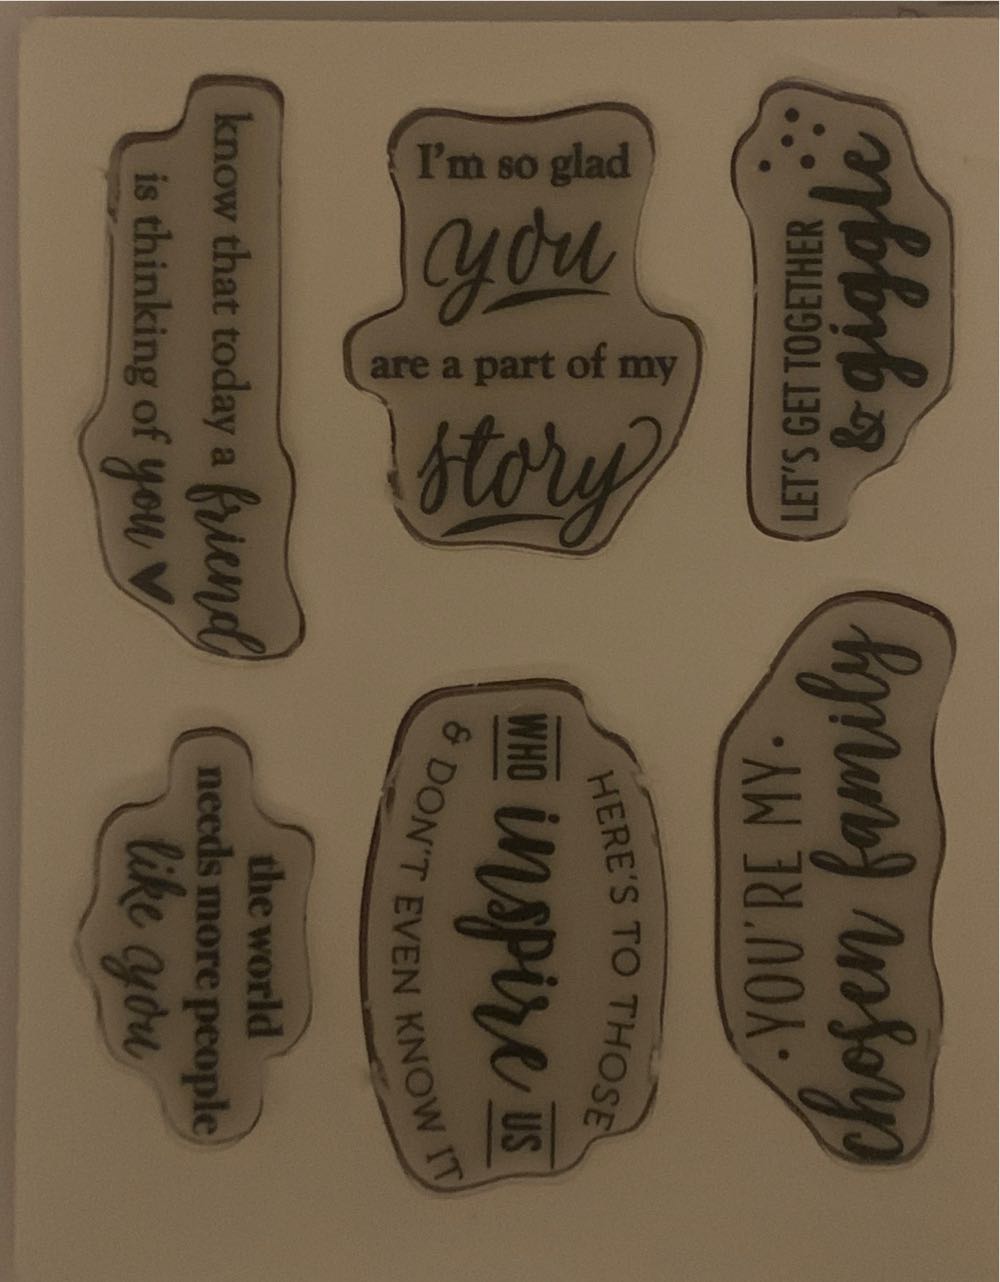 know that today a friend
is thinking of you
I'm so glad
you
are a part of my
story
LET'S GET TOGETHER
& giggle
the world
needs more people
like you
HERE'S TO THOSE
WHO inspire US
& DON'T EVEN KNOW IT
• YOU'RE MY •
chosen family